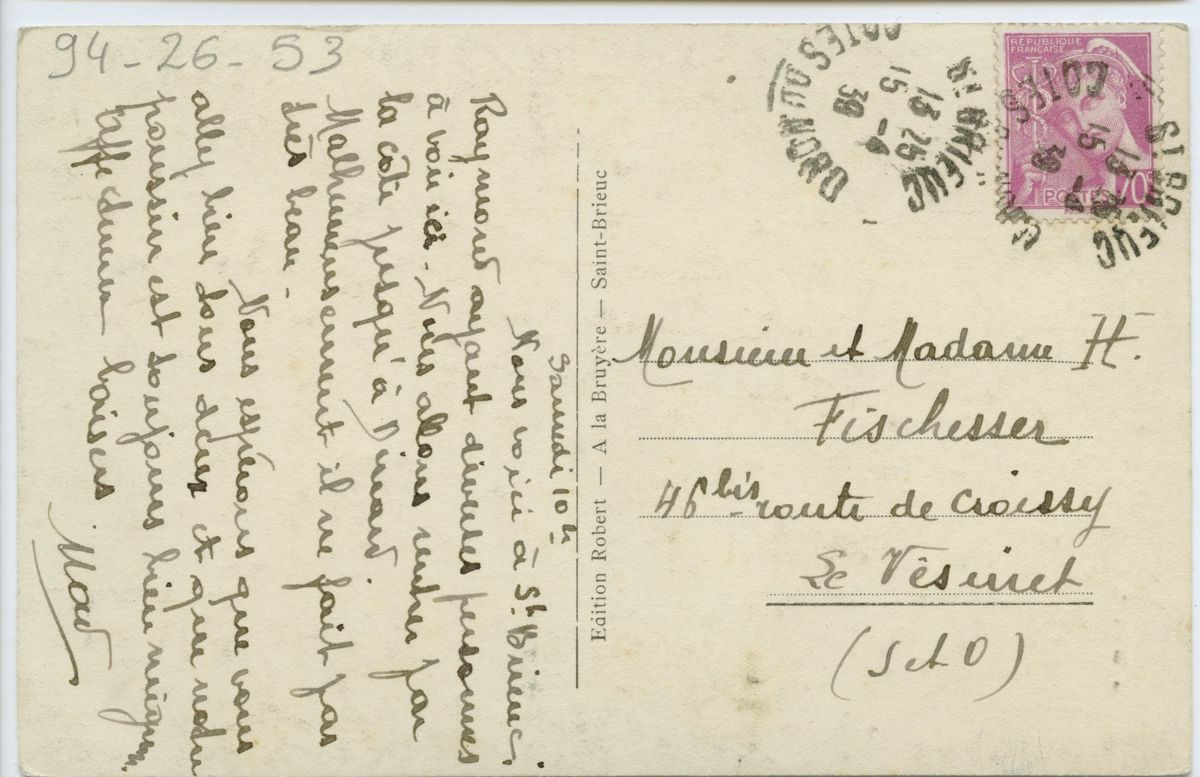 94-26-53
Samedi 10h
Nous voici à St Brieuc,
Raymond ayant diverses personnes
à voir ici - Nous allons rentrer par
la côte jusqu'à Dinard.
Malheureusement il ne fait pas
très beau.
Nous espérons que vous
allez bien tous deux et que notre
poussin est toujours bien mignon.
Affectueux baisers.
Mad
Edition Robert — A la Bruyère — Saint-Brieuc
RÉPUBLIQUE
FRANÇAISE
POSTES
70c
ST BRIEUC
13 25
15 -4
39
COTES DU NORD
ST BRIEUC
13
15 -4
39
COTES
Monsieur et Madame H.
Fischesser
46 bis route de Croissy
Le Vésinet
(S et O)